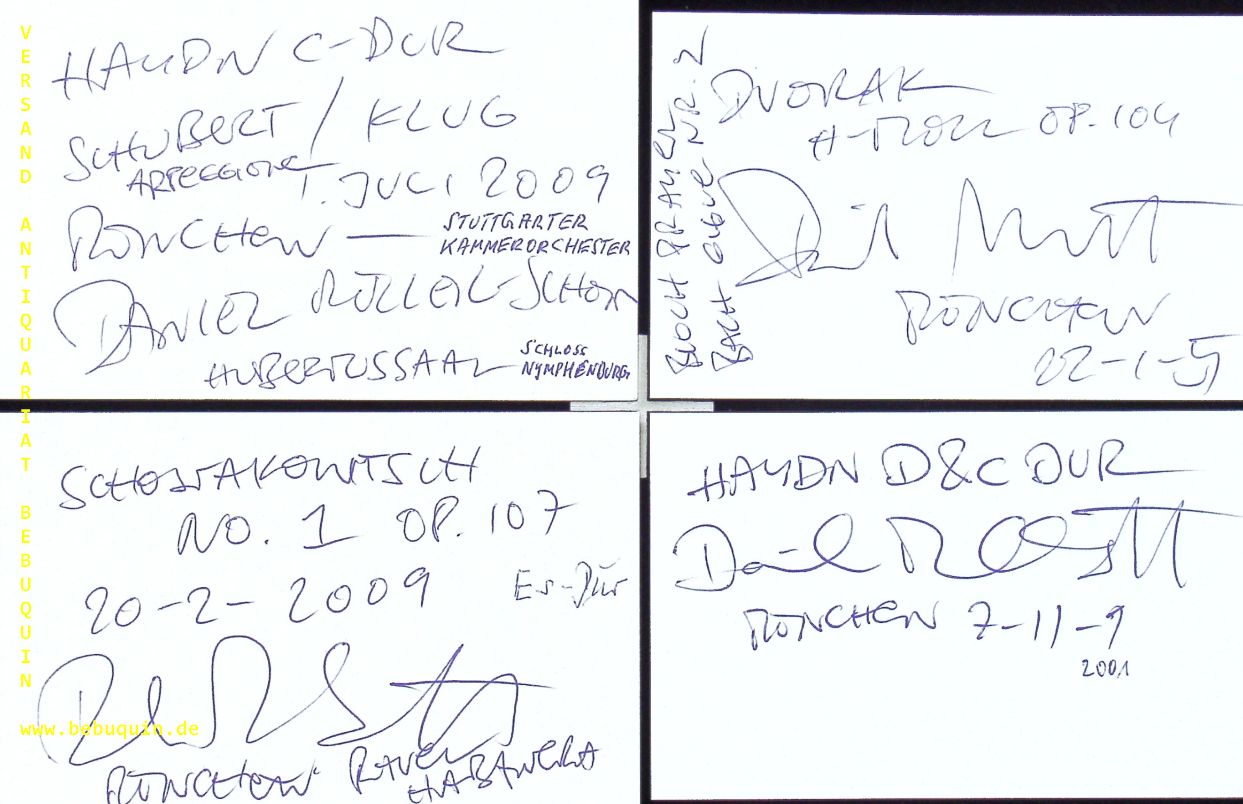 VERSAND ANTIQUARIAT BEBUQUIN
www.bebuquin.de
HAYDN C-DUR
SCHUBERT / KLUG
ARPEGGIONE 1. JULI 2009
MÜNCHEN — STUTTGARTER
KAMMERORCHESTER
DANIEL MÜLLER-SCHOTT
HUBERTUSSAAL SCHLOSS
NYMPHENBURG
BLOCH PRAYER
BACH GIGUE NR. 2
DVORAK
H-MOLL OP. 104
MÜNCHEN
22-1-5
SCHOSTAKOWITSCH
NO. 1 OP. 107
20-2-2009 Es-Dur
MÜNCHEN RAVEL
HABANERA
HAYDN D&C DUR
MÜNCHEN 7-11-9
2009